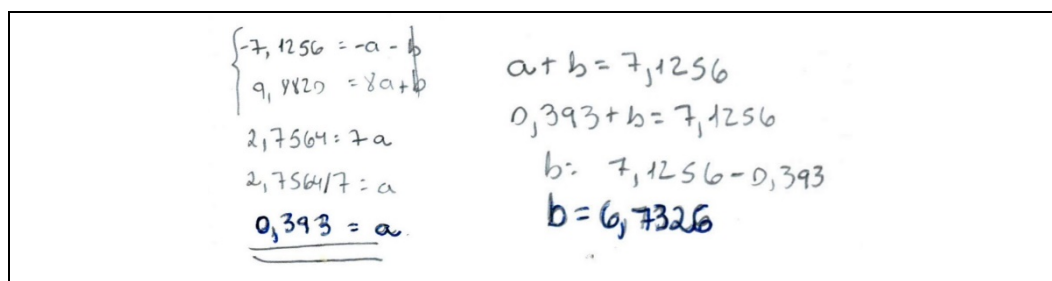 -7,1256 = -a - b
9,8820 = 8a + b
2,7564 = 7a
2,7564/7 = a
0,393 = a
a + b = 7,1256
0,393 + b = 7,1256
b = 7,1256 - 0,393
b = 6,7326